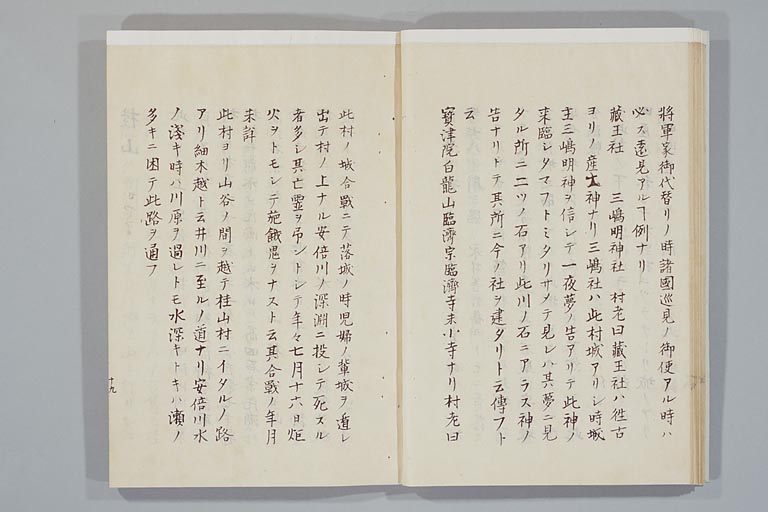 將軍家御代替リノ時諸國巡見ノ御使アル時ハ
必ス遠見アルヿ例ナリ
藏王社　三嶋明神社　村老曰藏王社ハ徃古
ヨリノ産土神ナリ三嶋社ハ此村城アリシ時城
主三嶋明神ヲ信シテ一夜夢ノ告アリテ此神ノ
来臨シタマフトミタリサメテ見レハ其夢ニ見
タル所ニ二ツノ石アリ此川ノ石ニアラス神ノ
告ナリトテ其所ニ今ノ社ヲ建タリト云傳フト
云
寳津院白龍山臨濟宗臨濟寺末小寺ナリ村老曰
此村ノ城合戰ニテ落城ノ時児婦ノ輩城ヲ遁レ
出テ村ノ上ナル安倍川ノ深淵ニ投シテ死スル
者多シ其亡霊ヲ吊ントシテ年々七月十六日炬
火ヲトモシテ施餓鬼ヲナスト云其合戰ノ年月
未詳
此村ヨリ山谷ノ間ヲ越テ桂山村ニイタルノ路
アリ細木越ト云井川ニ至ルノ道ナリ安倍川水
ノ淺キ時ハ川原ヲ過レトモ水深キトキハ瀬ノ
多キニ困テ此路ヲ通フ
十九